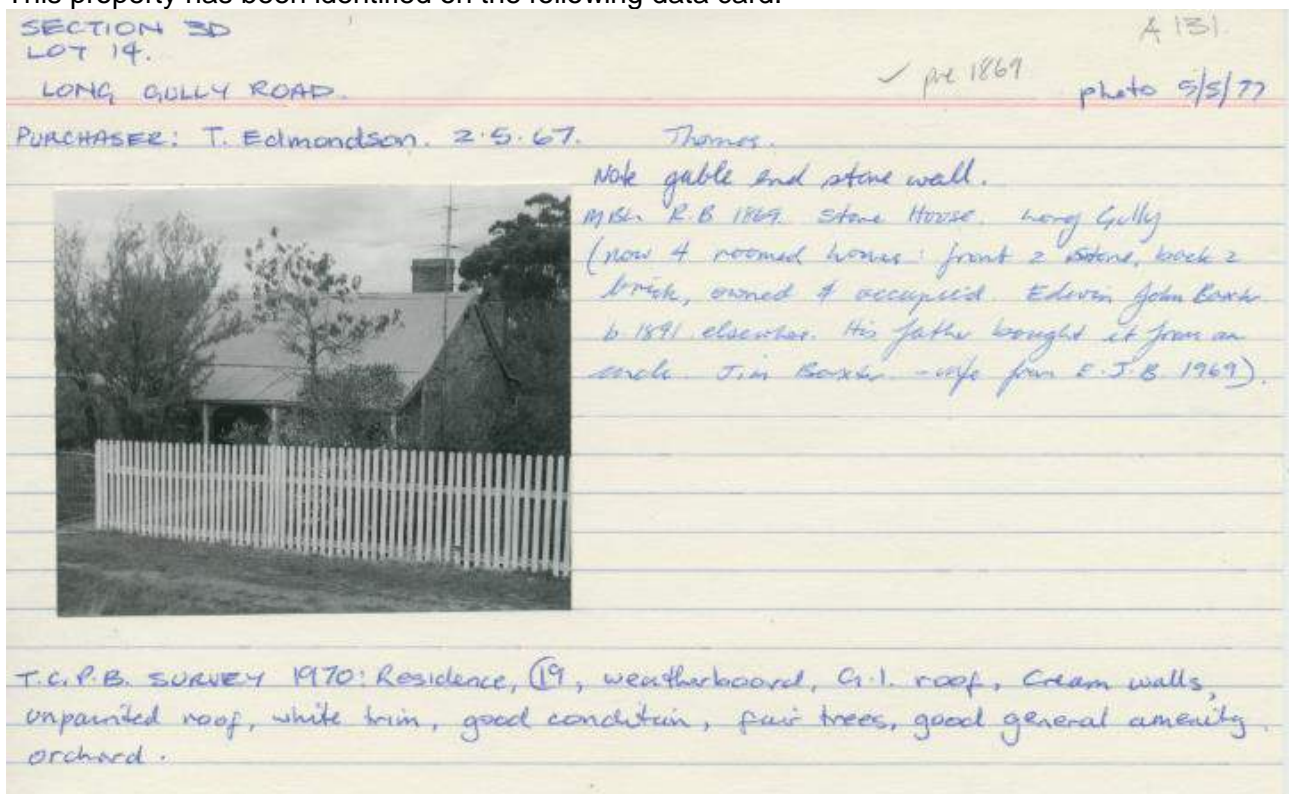 This property has been identified on the following data card.
SECTION 3D
A 131.
LOT 14.
✓ pre 1869
LONG GULLY ROAD.
photo 5/5/77
PURCHASER: T. Edmondson. 2.5.67. Thomas.
Note gable end stone wall.
R.B 1869. Stone House. Long Gully
(now 4 roomed house: front 2 stone, back 2
brick, owned & occupied. Edwin John Baxter
b 1891 elsewhere. His father bought it from an
uncle. Jim Baxter - from E.J.B. 1969).
T.C.P.B. SURVEY 1970: Residence, 19, weatherboard, G.I. roof, Cream walls,
unpainted roof, white trim, good condition, fair trees, good general amenity,
orchard.